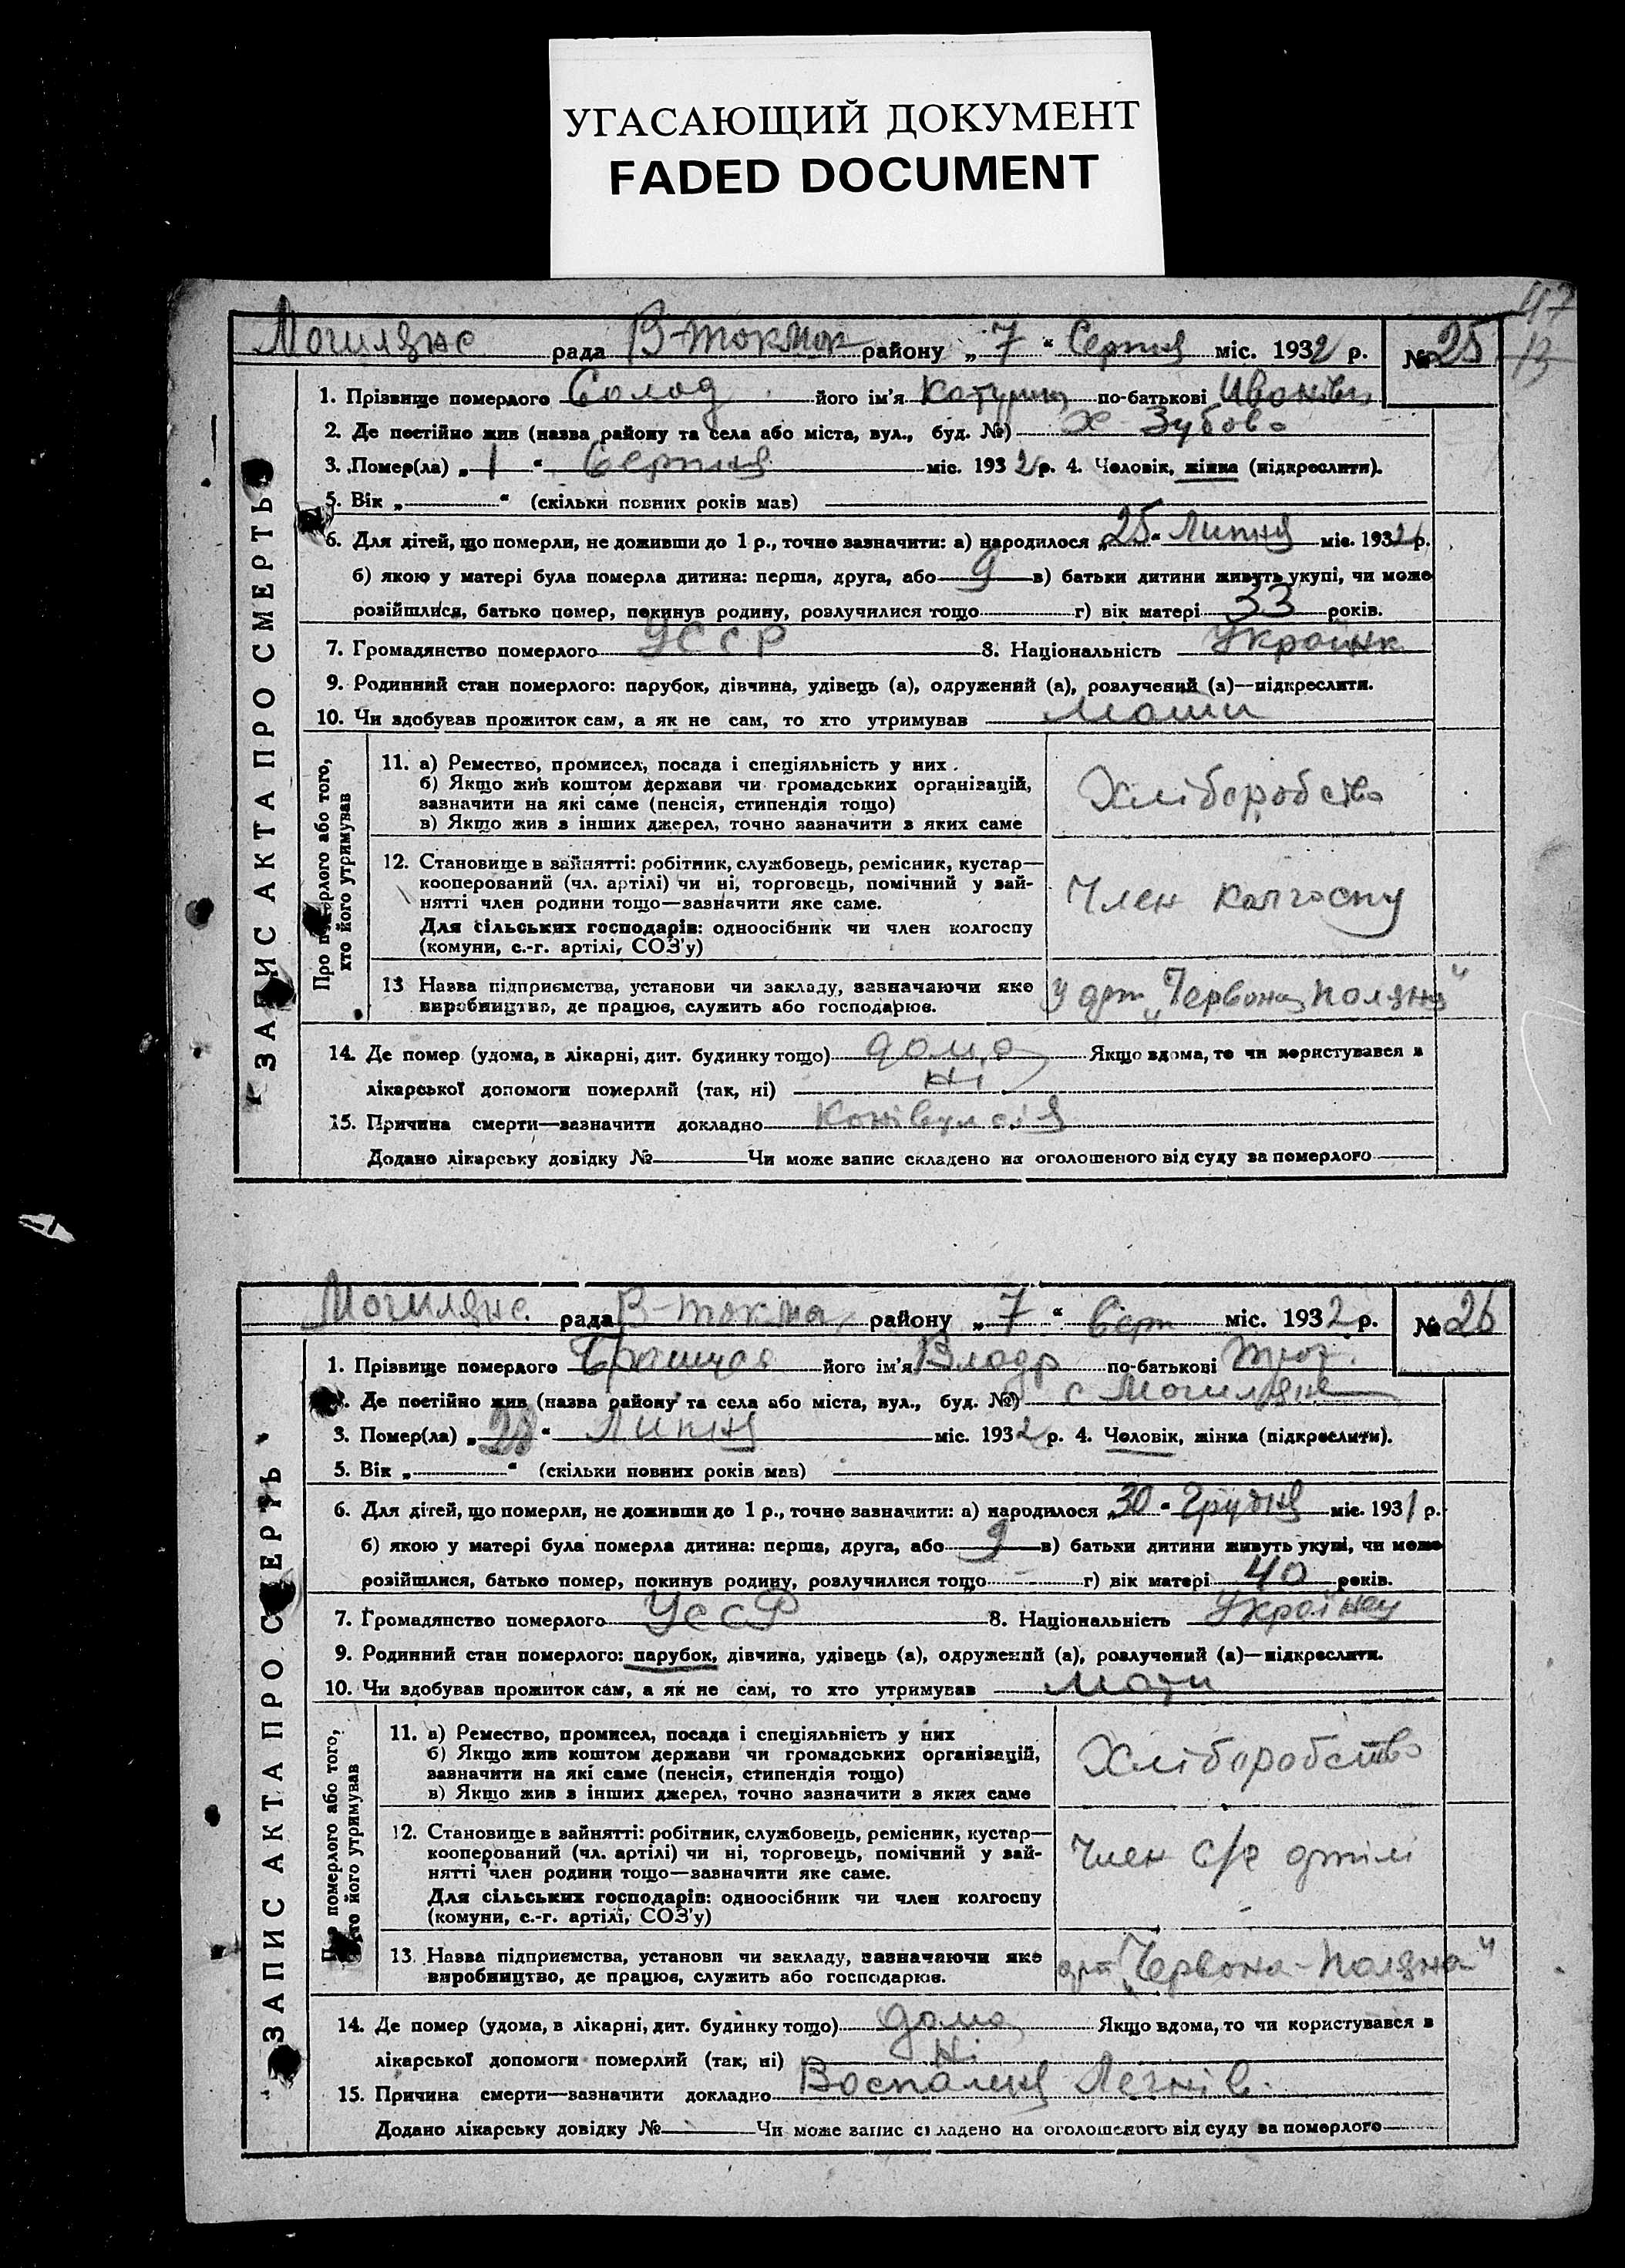 УГАСАЮЩИЙ ДОКУМЕНТ
FADED DOCUMENT
117
13
Могиляне рада В-Токмак району „ 7 “ Серпня міс. 1932 р. № 25
ЗАПИС АКТА ПРО СМЕРТЬ
1. Прізвище померлого Солод його ім'я Катерина по-батькові Ивонівн
2. Де постійно жив (назва району та села або міста, вул., буд. №) Х Зубово
3. Помер(ла) „ 1 “ Серпня міс. 1932 р. 4. Чоловік, жінка (підкреслити).
5. Вік „ “ (скільки повних років мав)
6. Для дітей, що померли, не доживши до 1 р., точно зазначити: а) народилося „ 25 “ Липня міс. 1932 р.
б) якою у матері була померла дитина: перша, друга, або 9 в) батьки дитини живуть укупі, чи може
розійшлися, батько помер, покинув родину, розлучилися тощо г) вік матері 33 років.
7. Громадянство померлого УССР 8. Національність Українк
9. Родинний стан померлого: парубок, дівчина, удівець (а), одружений (а), розлучений (а)—підкреслити.
10. Чи здобував прожиток сам, а як не сам, то хто утримував Мати
Про померлого або того,
хто його утримував
11. а) Ремество, промисел, посада і спеціяльність у них.
б) Якщо жив коштом держави чи громадських організацій,
зазначити на які саме (пенсія, стипендія тощо)
в) Якщо жив з інших джерел, точно зазначити з яких саме
Хліборобство
12. Становище в зайнятті: робітник, службовець, ремісник, кустар—
кооперований (чл. артілі) чи ні, торговець, помічний у зай-
нятті член родини тощо—зазначити яке саме.
Для сільських господарів: одноосібник чи член колгоспу
(комуни, с.-г. артілі, СОЗ'у)
Член колгоспу
13 Назва підприємства, установи чи закладу, зазначаючи яке
виробництво, де працює, служить або господарює.
у арт „Червона Поляна“
14. Де помер (удома, в лікарні, дит. будинку тощо) дома Якщо вдома, то чи користувався з
лікарської допомоги померлий (так, ні) Ні
15. Причина смерти—зазначити докладно Конівулсія
Додано лікарську довідку № Чи може запис складено на оголошеного від суду за померлого
Могиляне. рада В-Токма району „ 7 “ Серп міс. 1932 р. № 26
ЗАПИС АКТА ПРО СМЕРТЬ
1. Прізвище померлого його ім'я Владр по-батькові
2. Де постійно жив (назва району та села або міста, вул., буд. №) с Могиляне
3. Помер(ла) „ 28 “ Липня міс. 1932 р. 4. Чоловік, жінка (підкреслити).
5. Вік „ “ (скільки повних років мав)
6. Для дітей, що померли, не доживши до 1 р., точно зазначити: а) народилося „ 30 “ Грудня міс. 1931 р.
б) якою у матері була померла дитина: перша, друга, або 9 в) батьки дитини живуть укупі, чи може
розійшлися, батько помер, покинув родину, розлучилися тощо г) вік матері 40 років.
7. Громадянство померлого УССР 8. Національність Українец
9. Родинний стан померлого: парубок, дівчина, удівець (а), одружений (а), розлучений (а)—підкреслити.
10. Чи здобував прожиток сам, а як не сам, то хто утримував Мати
Про померлого або того,
хто його утримував
11. а) Ремество, промисел, посада і спеціяльність у них
б) Якщо жив коштом держави чи громадських організацій,
зазначити на які саме (пенсія, стипендія тощо)
в) Якщо жив з інших джерел, точно зазначити з яких саме
Хліборобство
12. Становище в зайнятті: робітник, службовець, ремісник, кустар—
кооперований (чл. артілі) чи ні, торговець, помічний у зай-
нятті член родини тощо—зазначити яке саме.
Для сільських господарів: одноосібник чи член колгоспу
(комуни, с.-г. артілі, СОЗ'у)
Член с/г артілі
13. Назва підприємства, установи чи закладу, зазначаючи яке
виробництво, де працює, служить або господарює.
арт „Червона-Поляна“
14. Де помер (удома, в лікарні, дит. будинку тощо) дома Якщо вдома, то чи користувався з
лікарської допомоги померлий (так, ні) Ні
15. Причина смерти—зазначити докладно Воспаленя Легнів.
Додано лікарську довідку № Чи може запис складено на оголошеного від суду за померлого